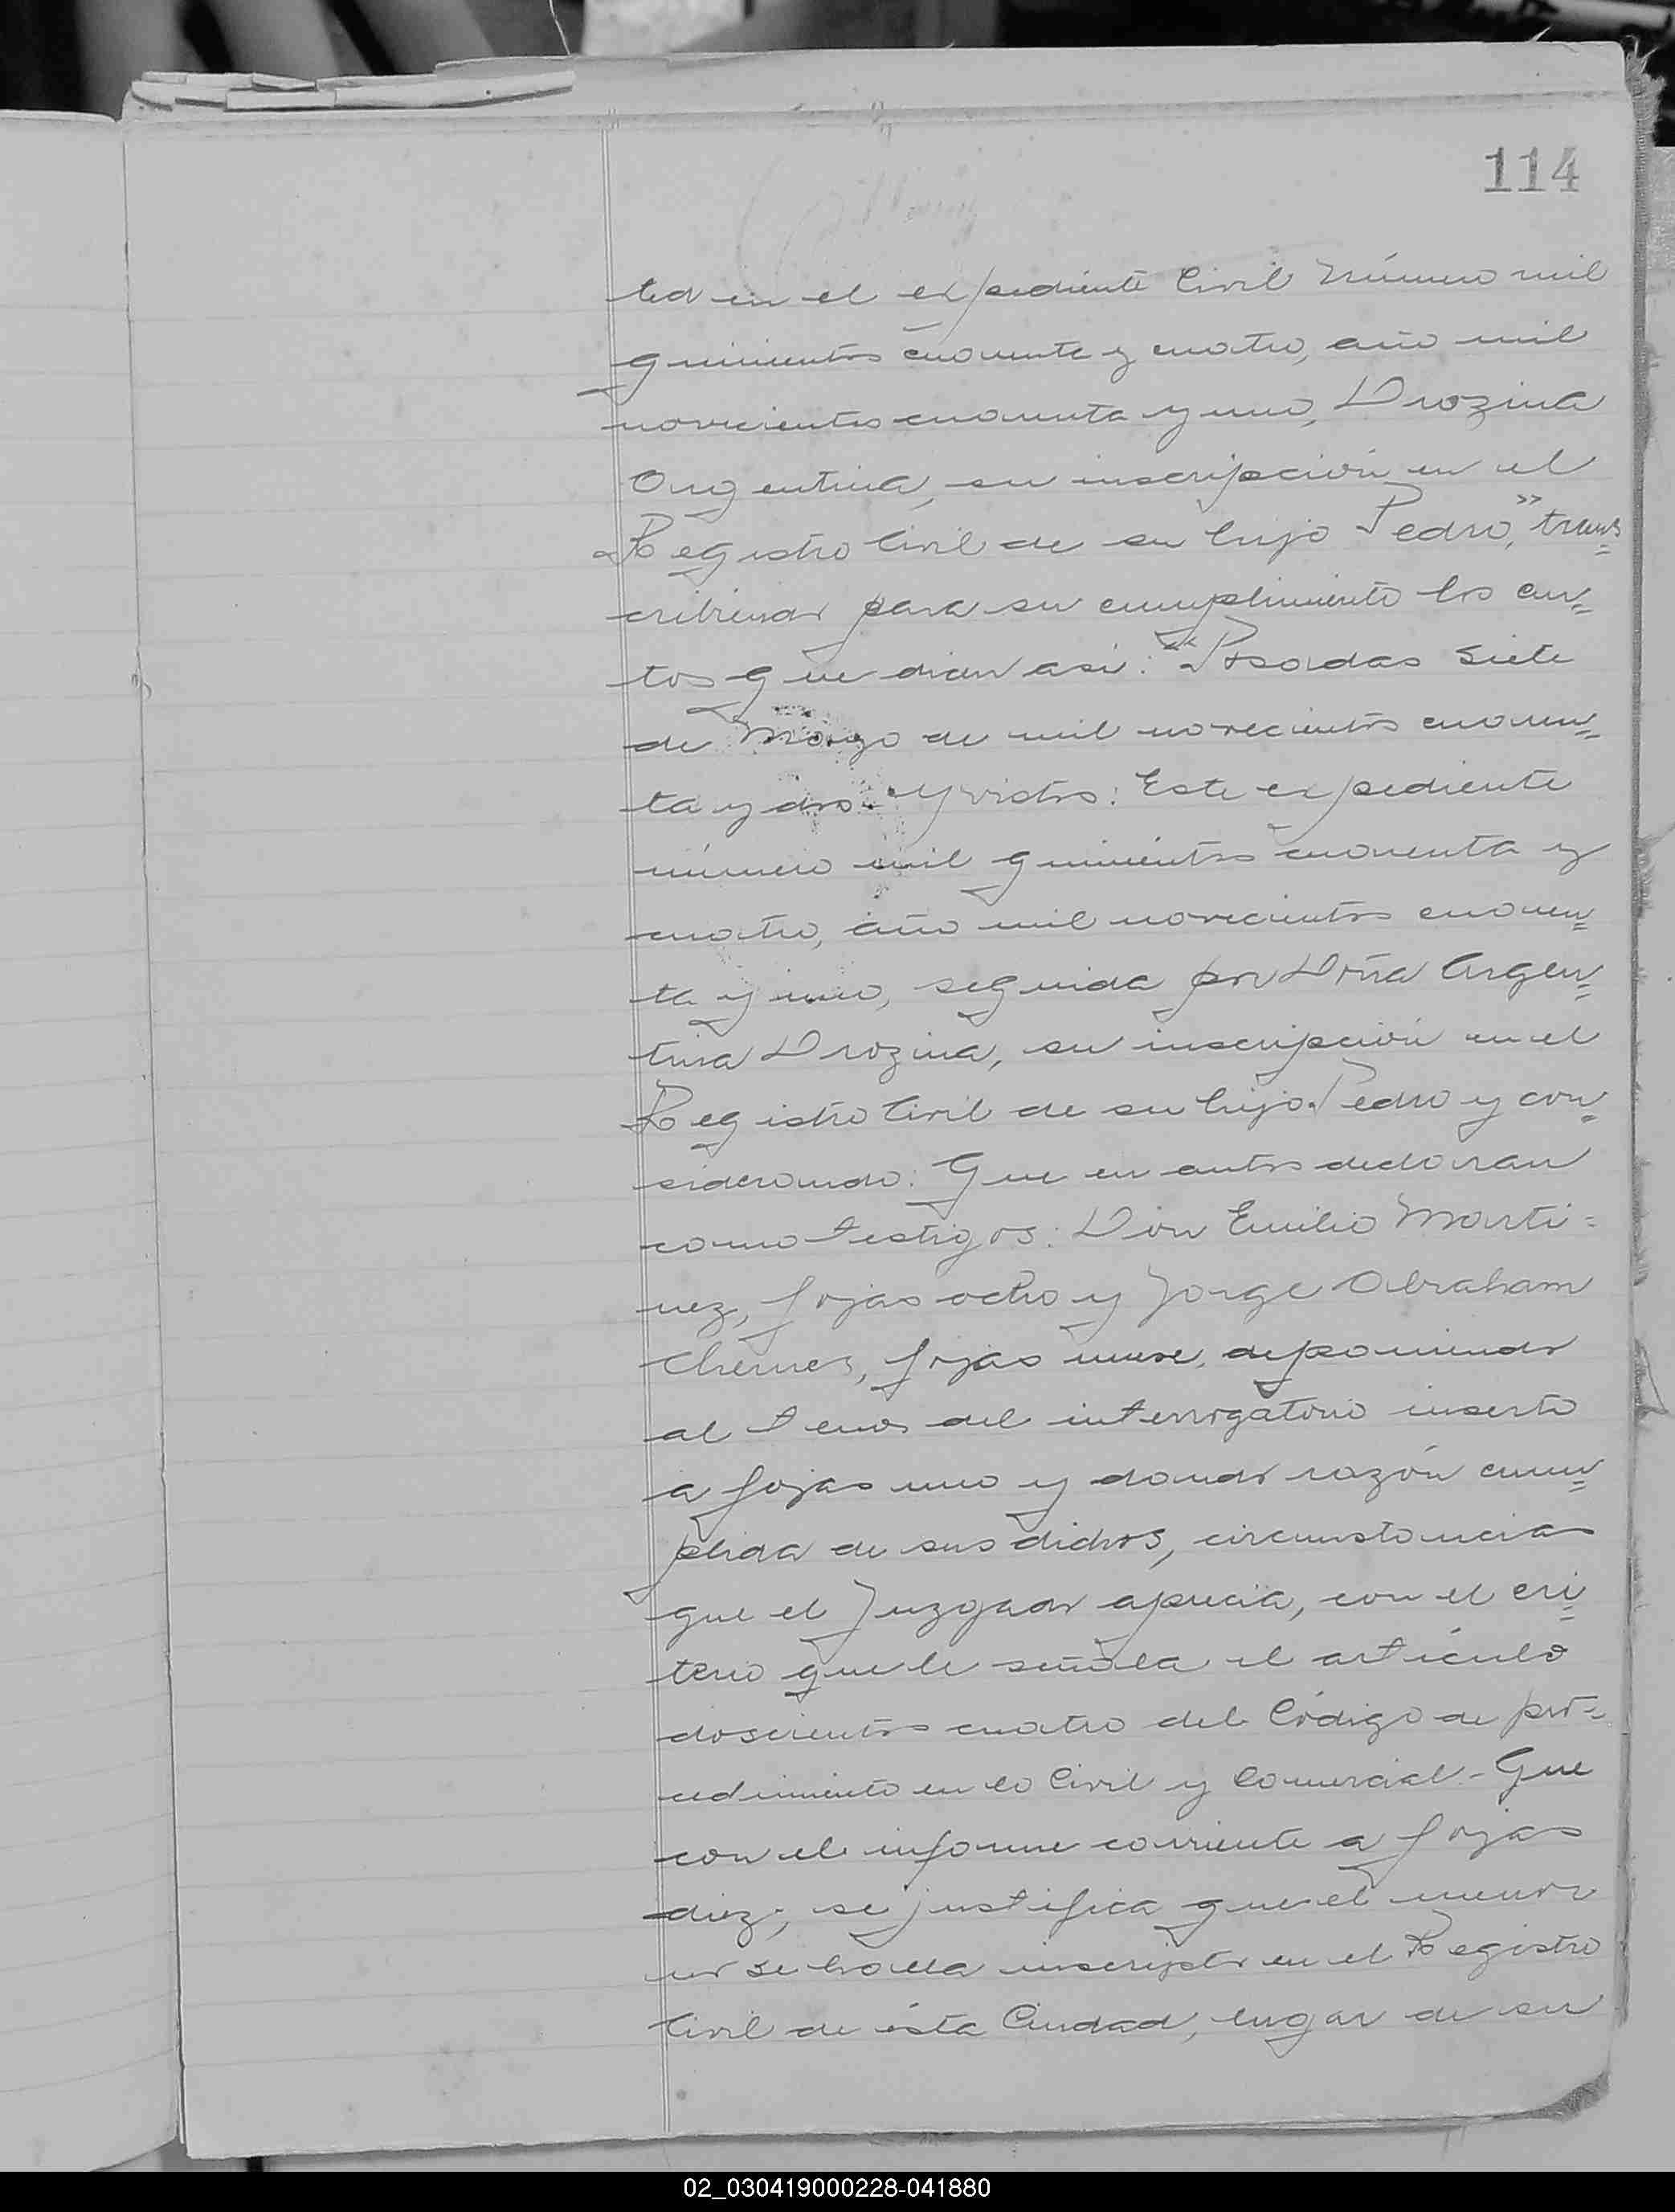 114
ted en el expediente Civil Número mil
quinientos cuarenta y cuatro, año mil
novecientos cuarenta y uno, Drozina
Argentina, su inscripción en el
Registro Civil de su hijo Pedro," trans=
cribiendo para su cumplimiento los au=
tos que dicen así: "Posadas Siete
de Marzo de mil novecientos cuaren=
ta y dos. Y vistos: Este expediente
número mil quinientos cuarenta y
cuatro, año mil novecientos cuaren=
ta y uno, seguida por Doña Argen=
tina Drozina, su inscripción en el
Registro Civil de su hijo Pedro y con=
siderando: Que en autos declaran
como testigos: Don Emilio Marti=
nez, fojas ocho y Jorge Abraham
Chemes, fojas nueve, deponiendo
al tenor del interrogatorio inserto
a fojas uno y dando razón cum=
plida de sus dichos, circunstancias
que el Juzgado aprecia, con el cri=
terio que le señala el artículo
doscientos cuatro del Código de pro=
cedimiento en lo Civil y Comercial - Que
con el informe corriente a fojas
diez, se justifica que el menor
no se halla inscripto en el Registro
Civil de ésta Ciudad, lugar de su
02_030419000228-041880